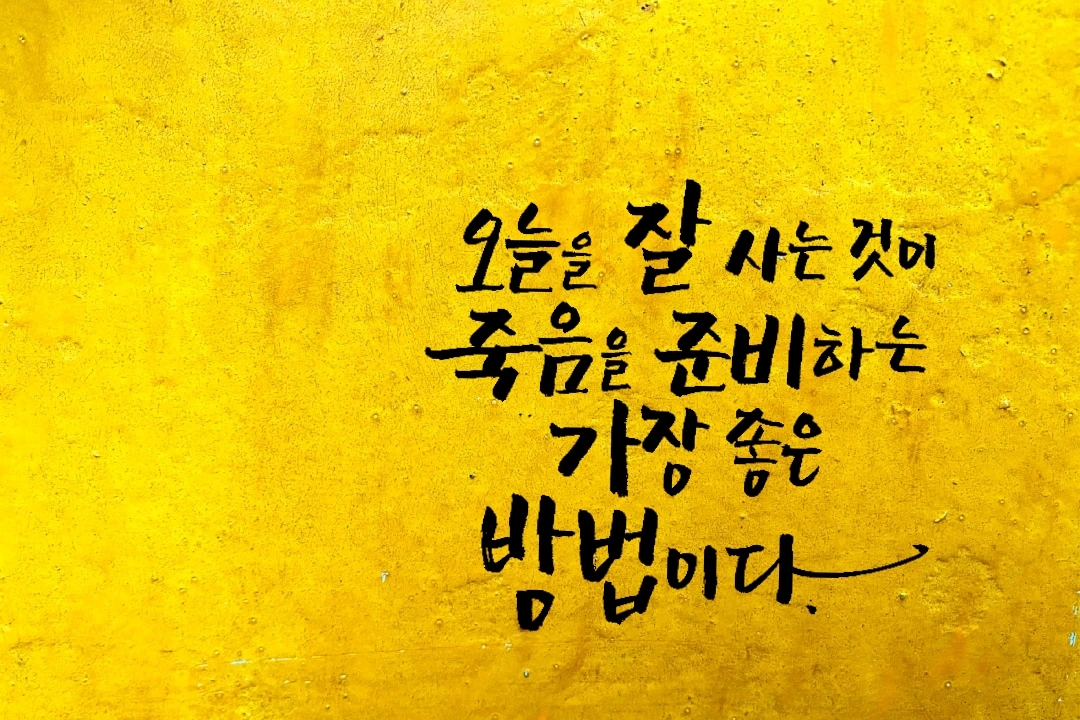 오늘을 잘 사는 것이
죽음을 준비하는
가장 좋은
방법이다.